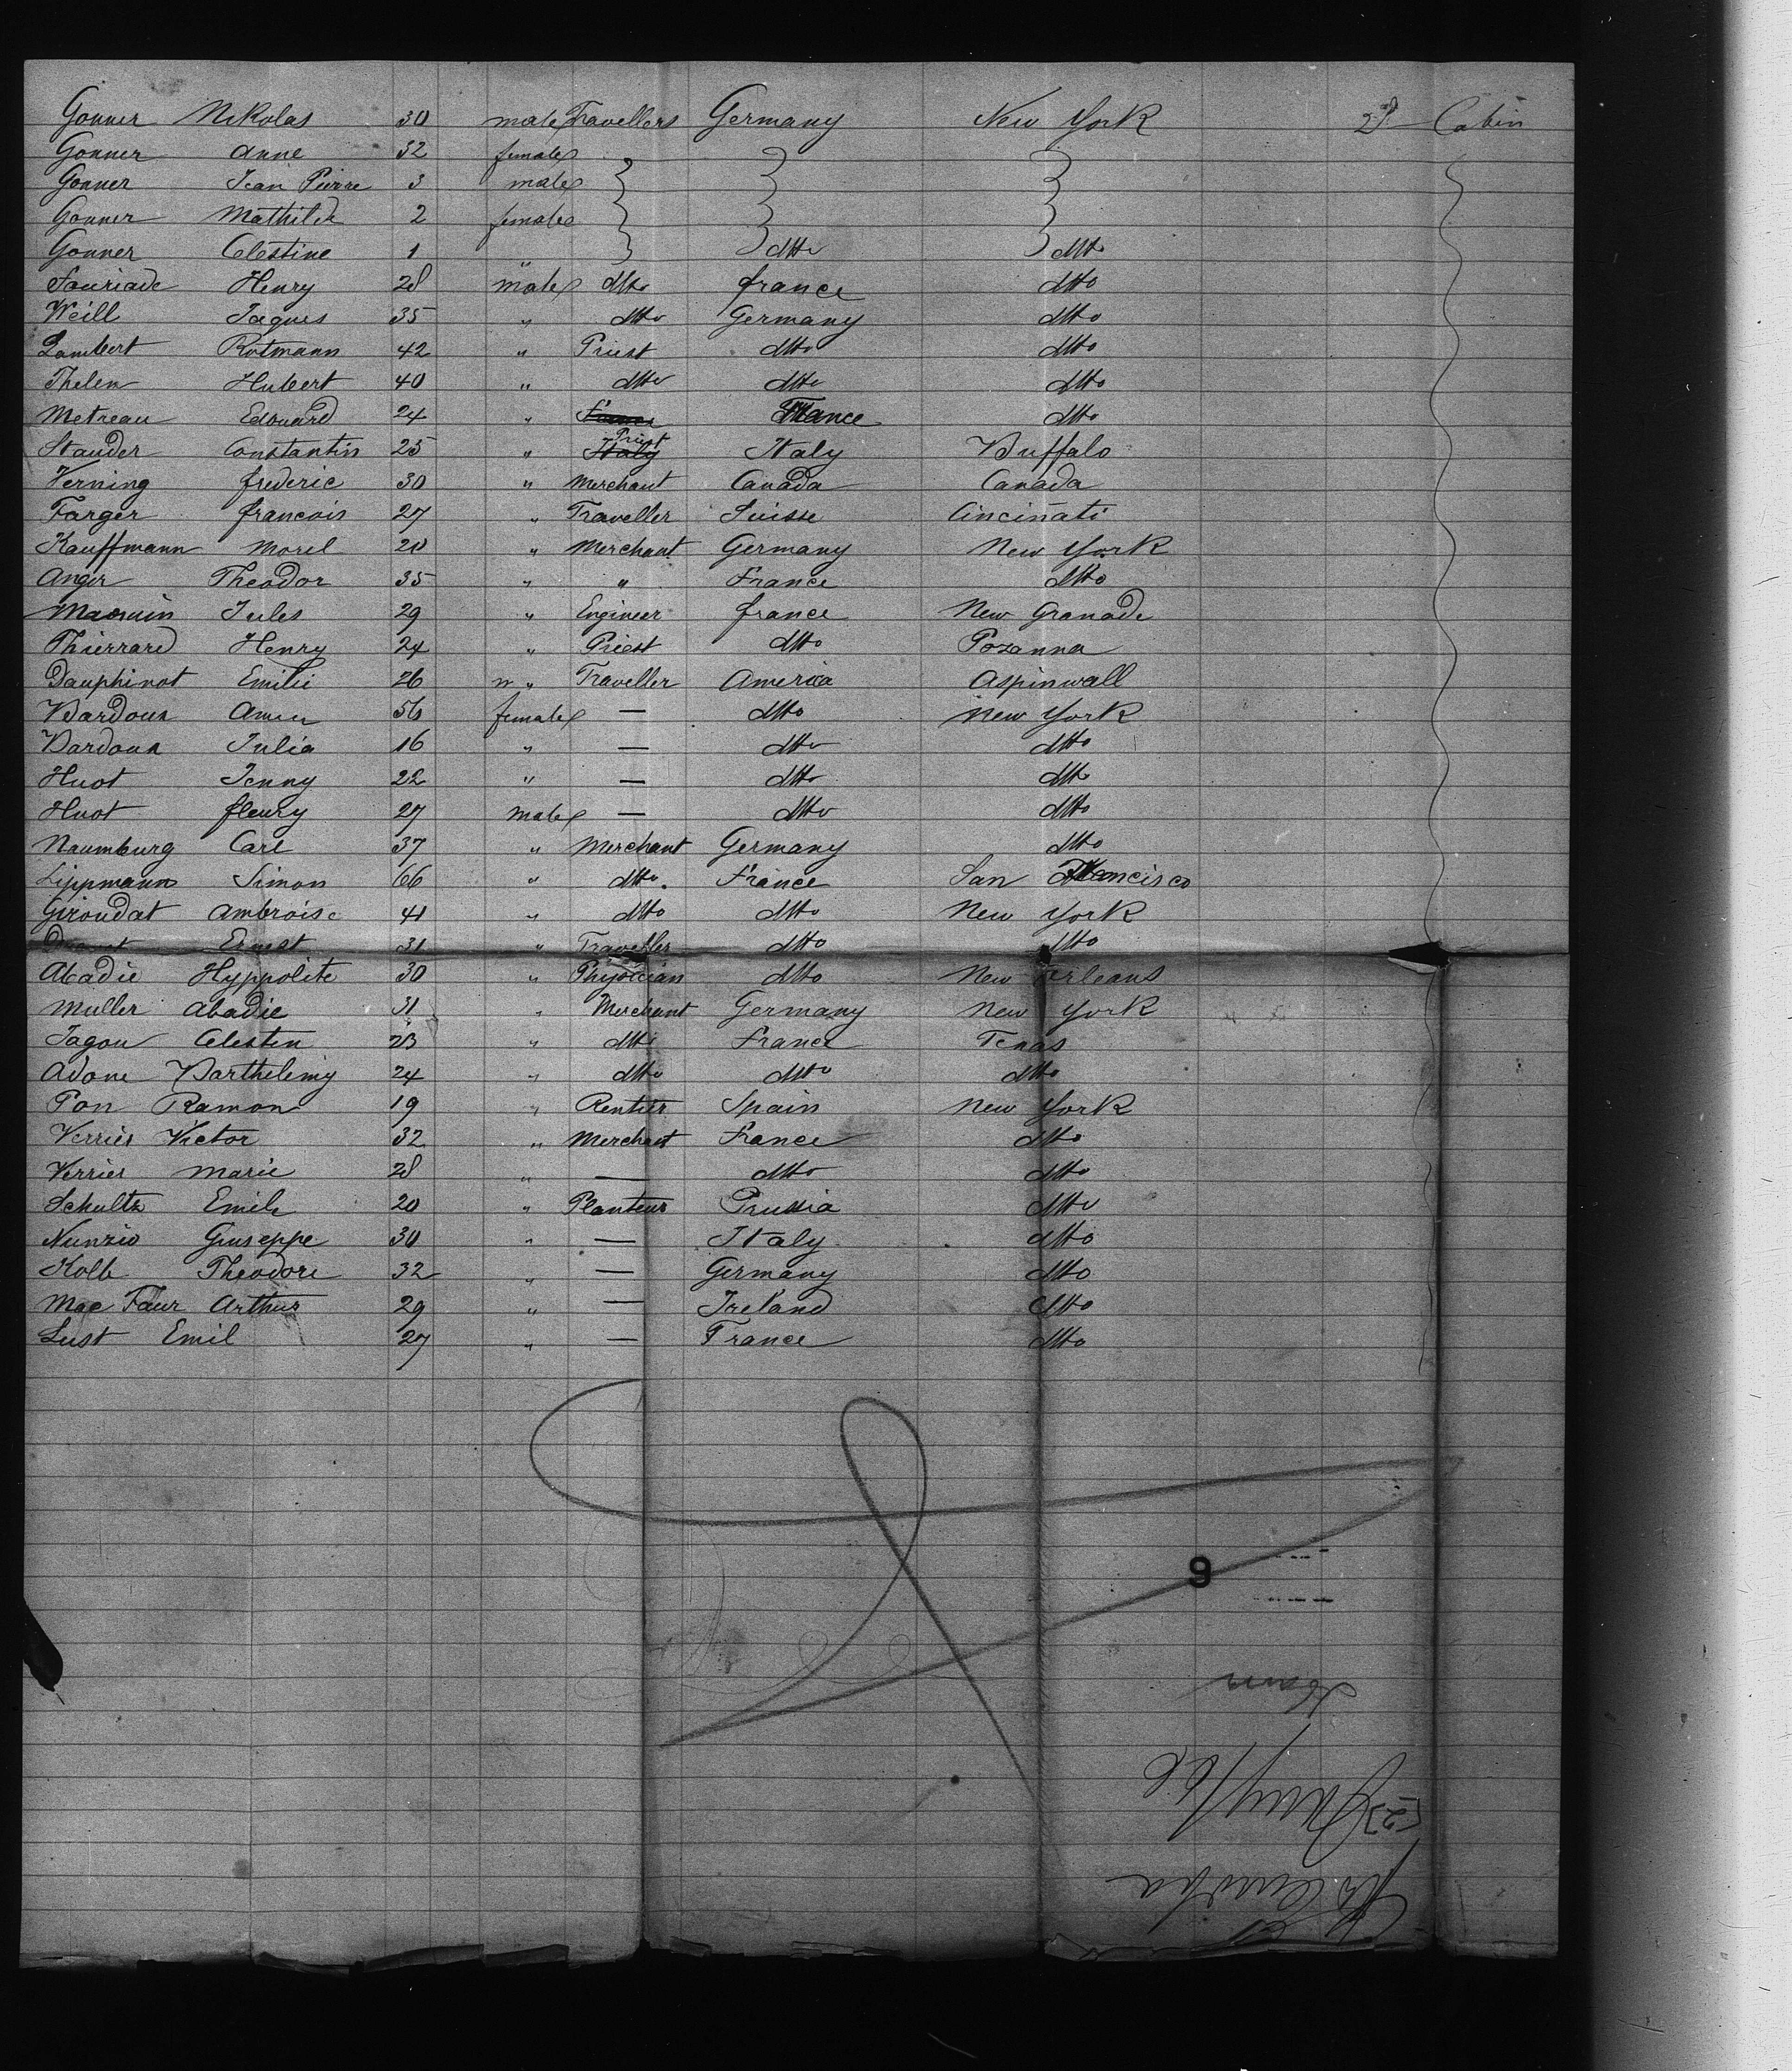 Gonner Nikolas 30 male Travellers Germany New York 2d Cabin
Gonner Anne 32 female
Gonner Jean Pierre 3 male
Gonner Mathilde 2 female
Gonner Celestine 1 " dtto dtto
Fouriade Henry 28 male dtto france dtto
Weill Jaques 35 " dtto Germany dtto
Lambert Rotmann 42 " Priest dtto dtto
Thelen Hubert 40 " dtto dtto dtto
Metreau Edouard 24 " France France dtto
Stauder Constantin 25 " Italy Priest Italy Buffalo
Verning frederic 30 " Merchant Canada Canada
Farger francois 27 " Traveller Suisse Cincinati
Kauffmann Morel 20 " Merchant Germany New York
Anger Theodor 35 " " France dtto
Jules 29 " Engineer france New Granade
Thierrard Henry 24 " Priest dtto Pozanna
Dauphinot Emilie 26 m " Traveller America Aspinwall
Bardoux 56 female — dtto New York
Bardoux Julia 16 " — dtto dtto
Huot Jenny 22 " — dtto dtto
Huot fleury 27 male — dtto dtto
Naumburg Carl 37 " Merchant Germany dtto
Lippmann Simon 66 " dtto. France San Francisco
Giroudat Ambroise 41 " dtto dtto New York
Ernest 31 " Traveller dtto dtto
Abadie Hyppolite 30 " Physician dtto New Orleans
Muller Abadie 31 " Merchant Germany New York
Jagou Celestin 23 " dtto France Texas
Adone Barthelemy 24 " dtto dtto dtto
Pon Ramon 19 " Rentier Spain New York
Verrier Victor 32 " Merchant France dtto
Verrier Marie 28 " — dtto dtto
Schultz Emile 20 " Planteur Prussia dtto
Nunzio Giuseppe 30 " — Italy dtto
Kolb Theodore 32 " — Germany dtto
Mac Faur Arthur 29 " — Ireland dtto
Lust Emil 27 " — France dtto
9